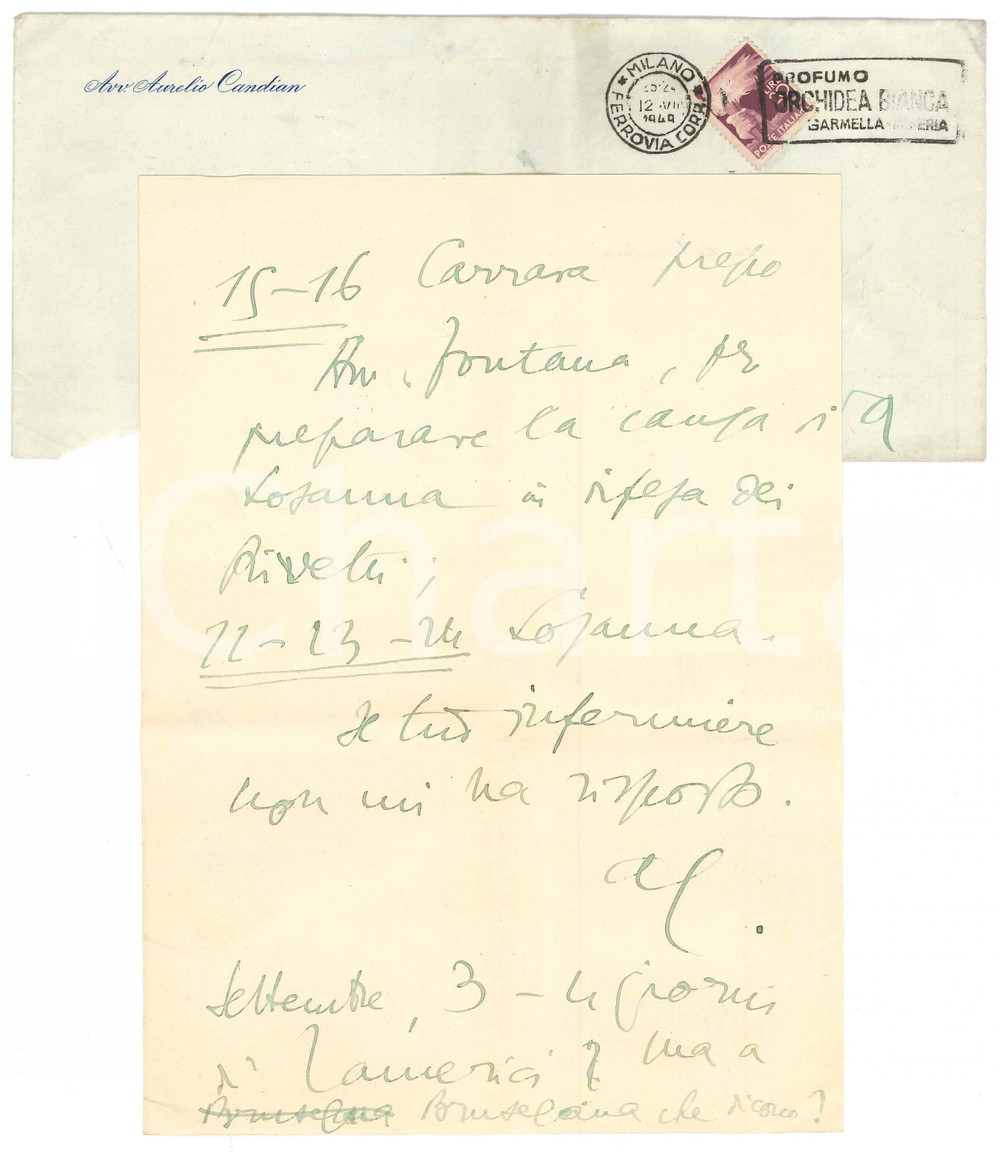 Avv Aurelio Candian
MILANO
12 VIII
1949
FERROVIA CORR.
PROFUMO
ORCHIDEA BIANCA
GARMELLA
POSTE ITALIANE
15-16 Carrara presso
Avv. Fontana, per
preparare la causa di
Losanna in difesa dei
Rivetti;
22-23-24 Losanna.
Il tuo infermiere
non mi ha risposto.
AC.
Settembre, 3-4 giorni
di Zamerici? Ma a
Brusegana Brusegana che dicono?
Charta